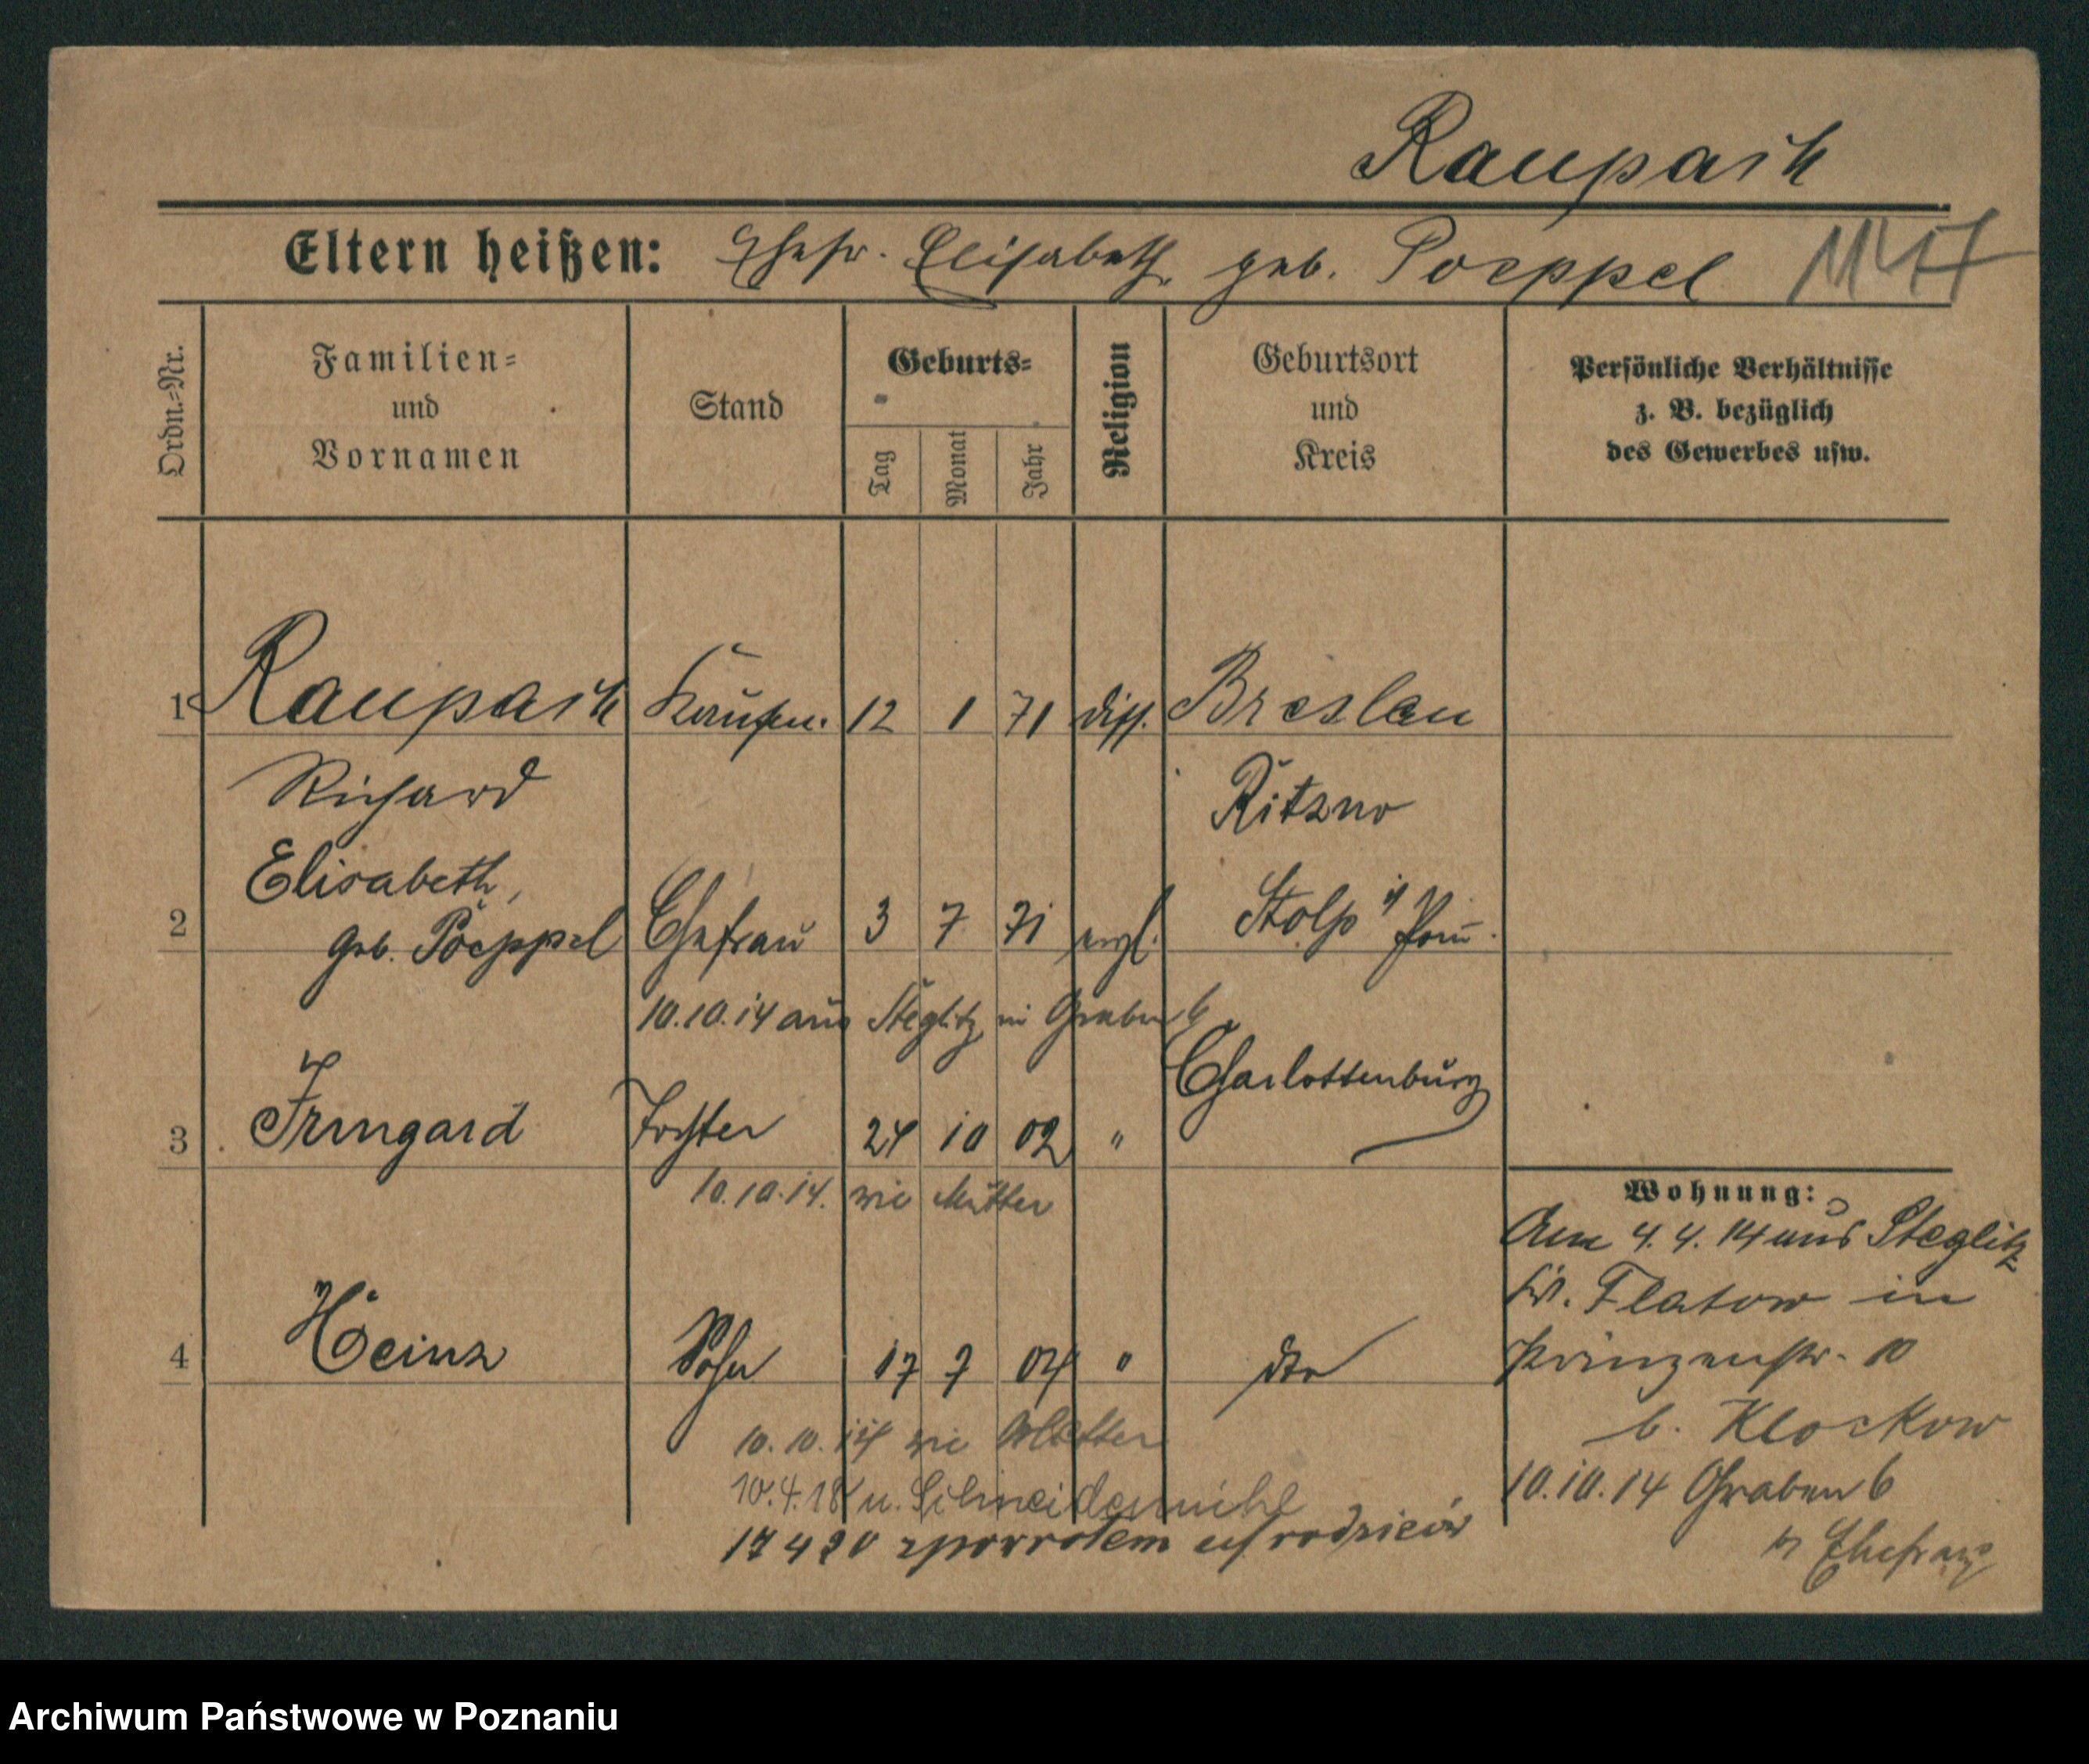 Raupach
Eltern heißen: Ehefr. Elisabeth geb. Poeppel
Ordn.-Nr.
Familien=
und
Vornamen
Stand
Geburts=
Tag
Monat
Jahr
Religion
Geburtsort
und
Kreis
Persönliche Verhältnisse
z. B. bezüglich
des Gewerbes usw.
1 Raupach Kaufm. 12 1 71 diss. Breslau
Richard
Ritzno
Elisabeth,
2 geb. Poeppel Ehefrau 3 7 71 evgl. Stolp i/ Pom.
10.10.14 aus Steglitz in Graben 6
Charlottenburg
3 Irmgard Tochter 24 10 02 "
10.10.14. wie Mutter
4 Heinz Sohn 17 7 04 " dto
10.10.14 wie Mutter
10.4.18 n. Schneidemühl
17 4 20 zpowrotem uf rodziców
Wohnung:
Am 4.4.14 aus Steglitz
Kr. Flatow in
Prinzenstr. 10
b. Klockow
10.10.14 Graben 6
Ehefrau
Archiwum Państwowe w Poznaniu